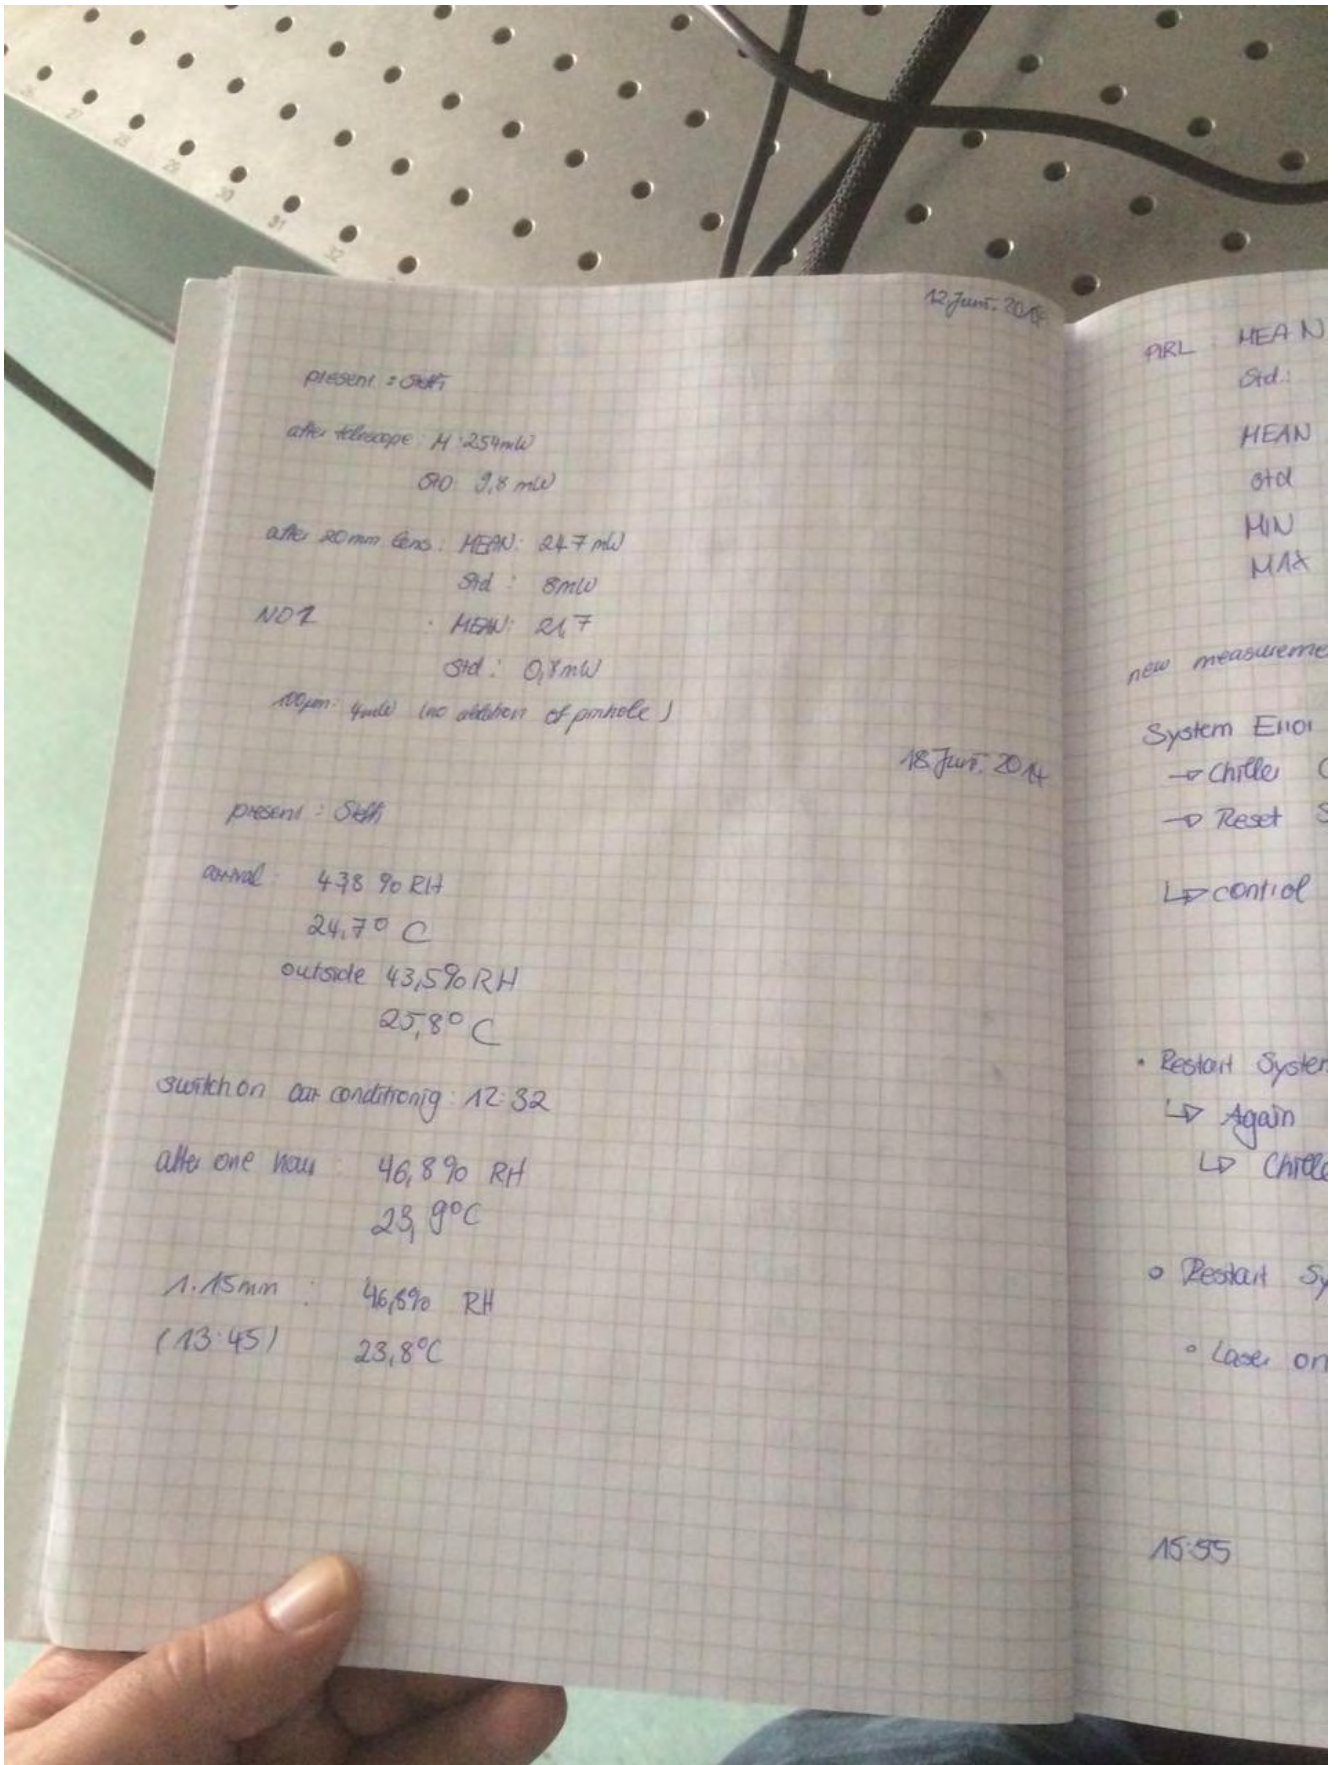 12. Juni. 2014
present : Steffi
after telescope : M : 254mW
STD: 9,8 mW
after 20mm lens : MEAN: 247 mW
Std : 8mW
ND1 : MEAN: 21,7
Std : 0,8mW
100µm: 4mW (no ablation of pinhole)
18. Juni. 2014
present : Steffi
arrival : 43,8 % RH
24,7° C
outside 43,5% RH
25,8° C
switch on air conditionig : 12:32
after one hour : 46,8% RH
23,9°C
1.15mm : 46,8% RH
(13:45) 23,8°C
PIRL : MEAN
Std.:
MEAN
std
MIN
MAX
new measureme
System Error
→ Chiller
→ Reset S
↳ control
• Restart System
↳ Again
↳ Chille
∘ Restart Sy
∘ Laser on
15:55